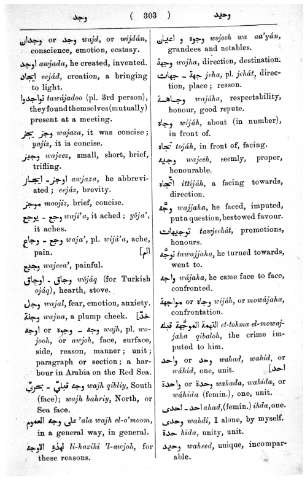 وجد ( 303 ) وحيد
وجد or وجدان wajd, or wijdán,
conscience, emotion, ecstasy.
اوجد aujada, he created, invented.
ايجاد eejád, creation, a bringing
to light.
تواجدوا tawájadoo (pl. 3rd person),
they found themselves (mutually)
present at a meeting.
وجز يجز wajaza, it was concise;
yajiz, it is concise.
وجيز wajeez, small, short, brief,
trifling.
اوجز - ايجاز aujaza, he abbrevi-
ated; eejáz, brevity.
موجز moojiz, brief, concise.
وجع - يوجع waji'a, it ached; yója',
it aches.
وجع - وجاع waja', pl. wijá'a, ache,
pain.
وجيع wajeea', painful.
وجاق - اوجاق wójáq (for Turkish
ojáq), hearth, stove.
وجل wajal, fear, emotion, anxiety.
وجنة wajna, a plump cheek.
وجه - وجوه or اوجه wajh, pl. wo-
jooh, or awjoh, face, surface,
side, reason, manner; unit;
paragraph or section; a har-
bour in Arabia on the Red Sea.
وجه قبلي - بحري wajh qibliy, South
(face); wajh bahriy, North, or
Sea face.
على وجه العموم 'ala wajh el-o'moom,
in a general way, in general.
لهذه الاوجه li-haziki 'l-awjoh, for
these reasons.
وجوه و اعيان wajooh wa aa'yán,
grandees and notables.
وجهة wojha, direction, destination.
جهة - جهات jeha, pl. jehát, direc-
tion, place; reason.
وجاهة wajáha, respectability,
honour, good repute.
وجاه wijáh, about (in number),
in front of.
تجاه tojáh, in front of, facing.
وجيه wajeeh, seemly, proper,
honourable.
اتجاه ittijáh, a facing towards,
direction.
وجّه wajjaha, he faced, imputed,
put a question, bestowed favour.
توجيهات taojeehát, promotions,
honours.
توجّه tawajjaha, he turned towards,
went to.
واجه wájaha, he came face to face,
confronted.
وجاه or مواجهة wijáh, or mowájaha,
confrontation.
التهمة الموجهة قبله el-tohma el-mowaj-
jaha qibaloh, the crime im-
puted to him.
وحد or واحد wahad, wahid, or
wáhid, one, unit.
وحدة or واحدة wahada, wahida, or
wáhida (femin.), one, unit.
احد - احدى ahad, (femin.) ihda, one.
وحدي wahdi, I alone, by myself.
حدة hida, unity, unit.
وحيد waheed, unique, incompar-
able.